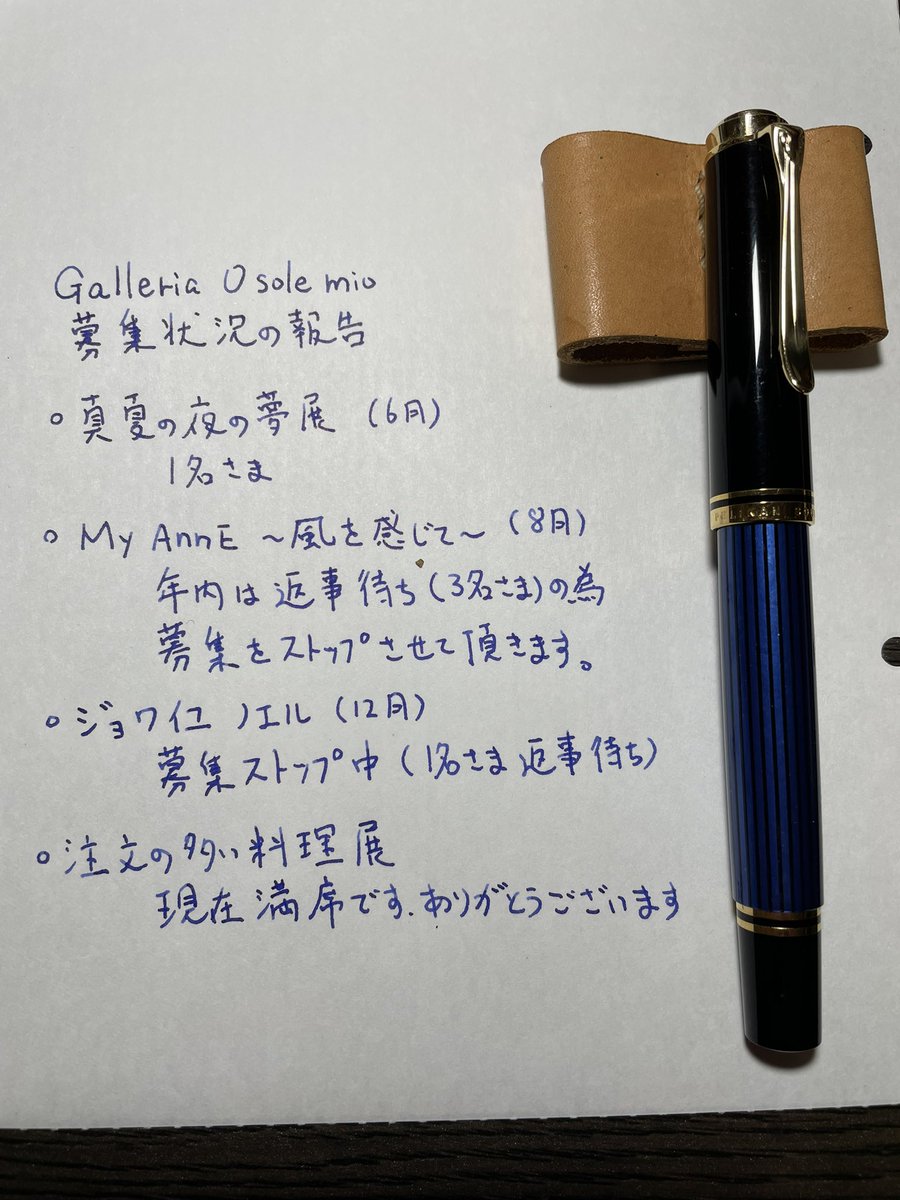 Galleria O sole mio
募集状況の報告
○真夏の夜の夢展 (6月)
1名さま
○My AnnE ~風を感じて~ (8月)
年内は返事待ち(3名さま)の為
募集をストップさせて頂きます。
○ジョワイユ ノエル (12月)
募集ストップ中 (1名さま返事待ち)
○注文の多い料理展
現在満席です.ありがとうございます